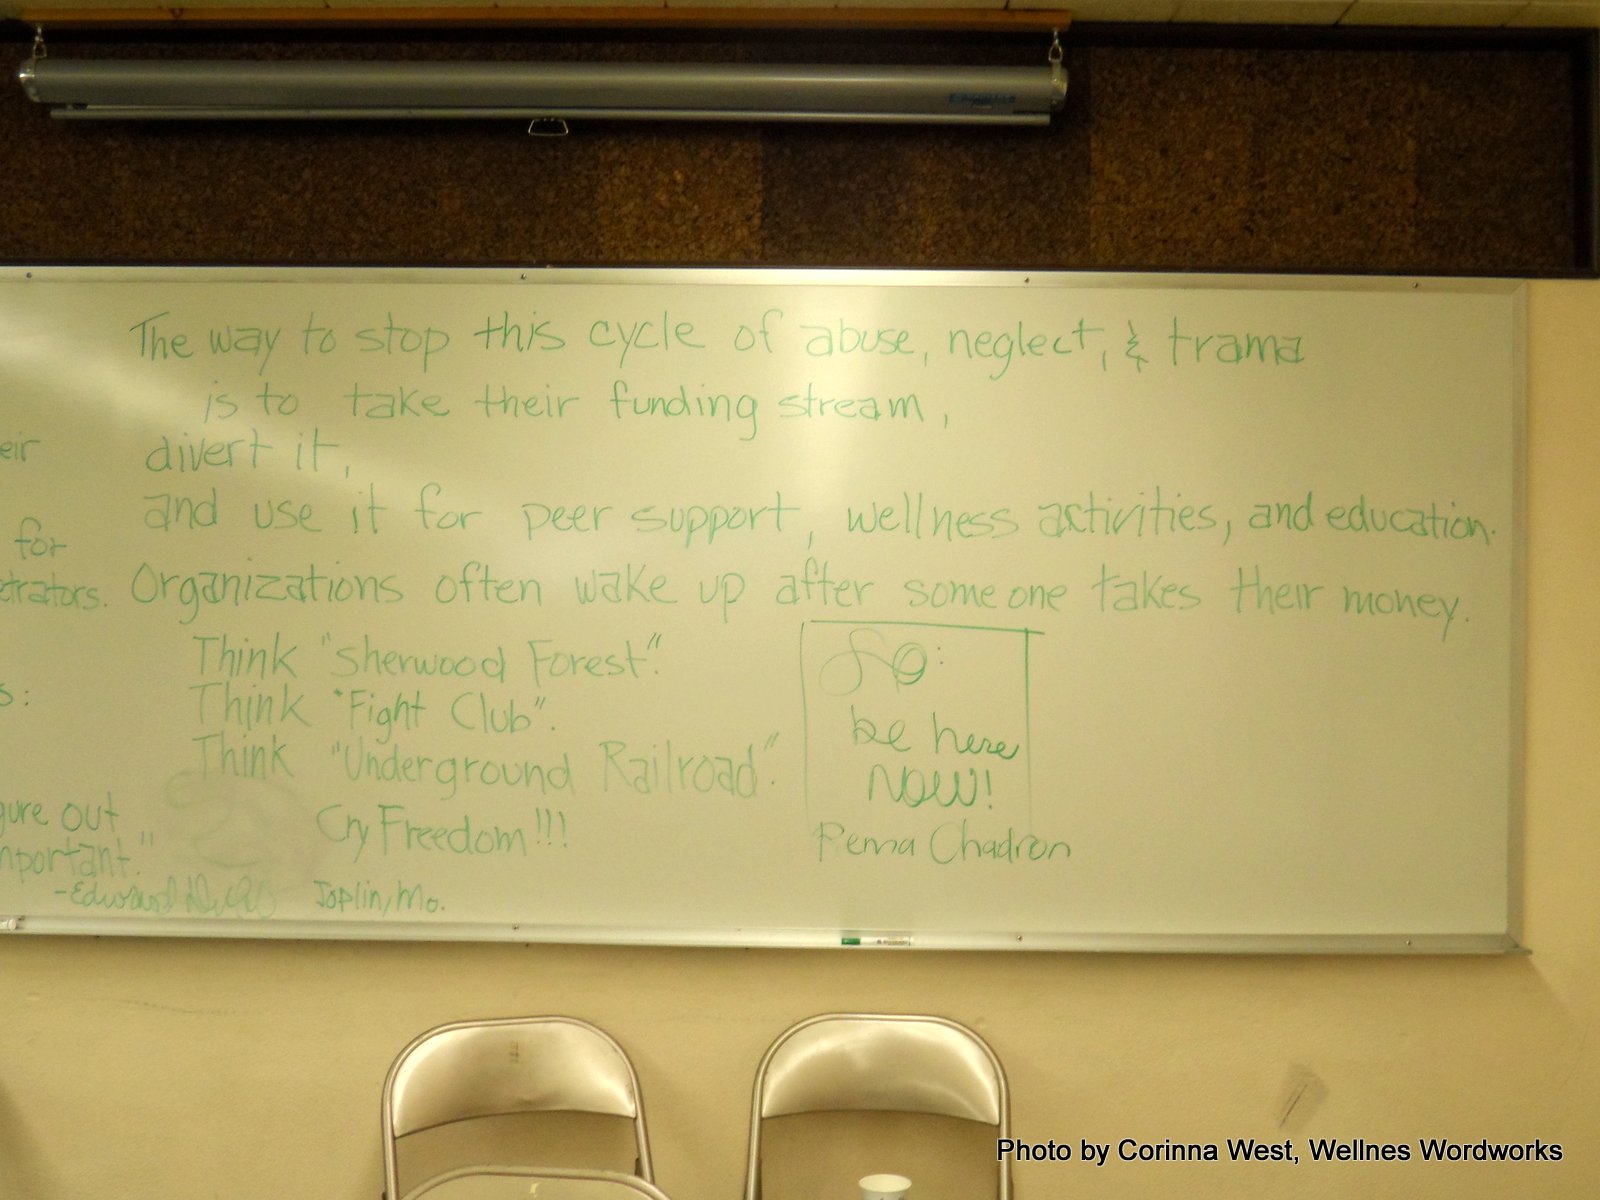 The way to stop this cycle of abuse, neglect, & trama
is to take their funding stream,
divert it,
and use it for peer support, wellness activities, and education.
Organizations often wake up after someone takes their money.
Think "Sherwood Forest".
Think "Fight Club".
Think "Underground Railroad".
Cry Freedom!!!
Joplin, Mo.
So:
be here
NOW!
Pema Chadron
eir
for
etrators.
s:
gure out
mportant."
-Edward
Photo by Corinna West, Wellnes Wordworks